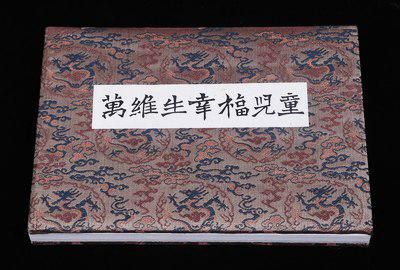 萬維生幸福兒童